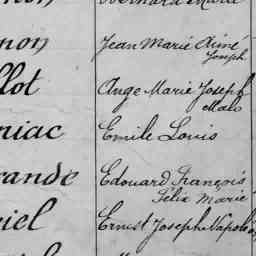 Bernard Marie
non Jean Marie Aimé
Joseph
llot Ange Marie Joseph
Malo
niac Emile Louis
rande Edouard François
Félix Marie
riel Ernest Joseph Napoléo